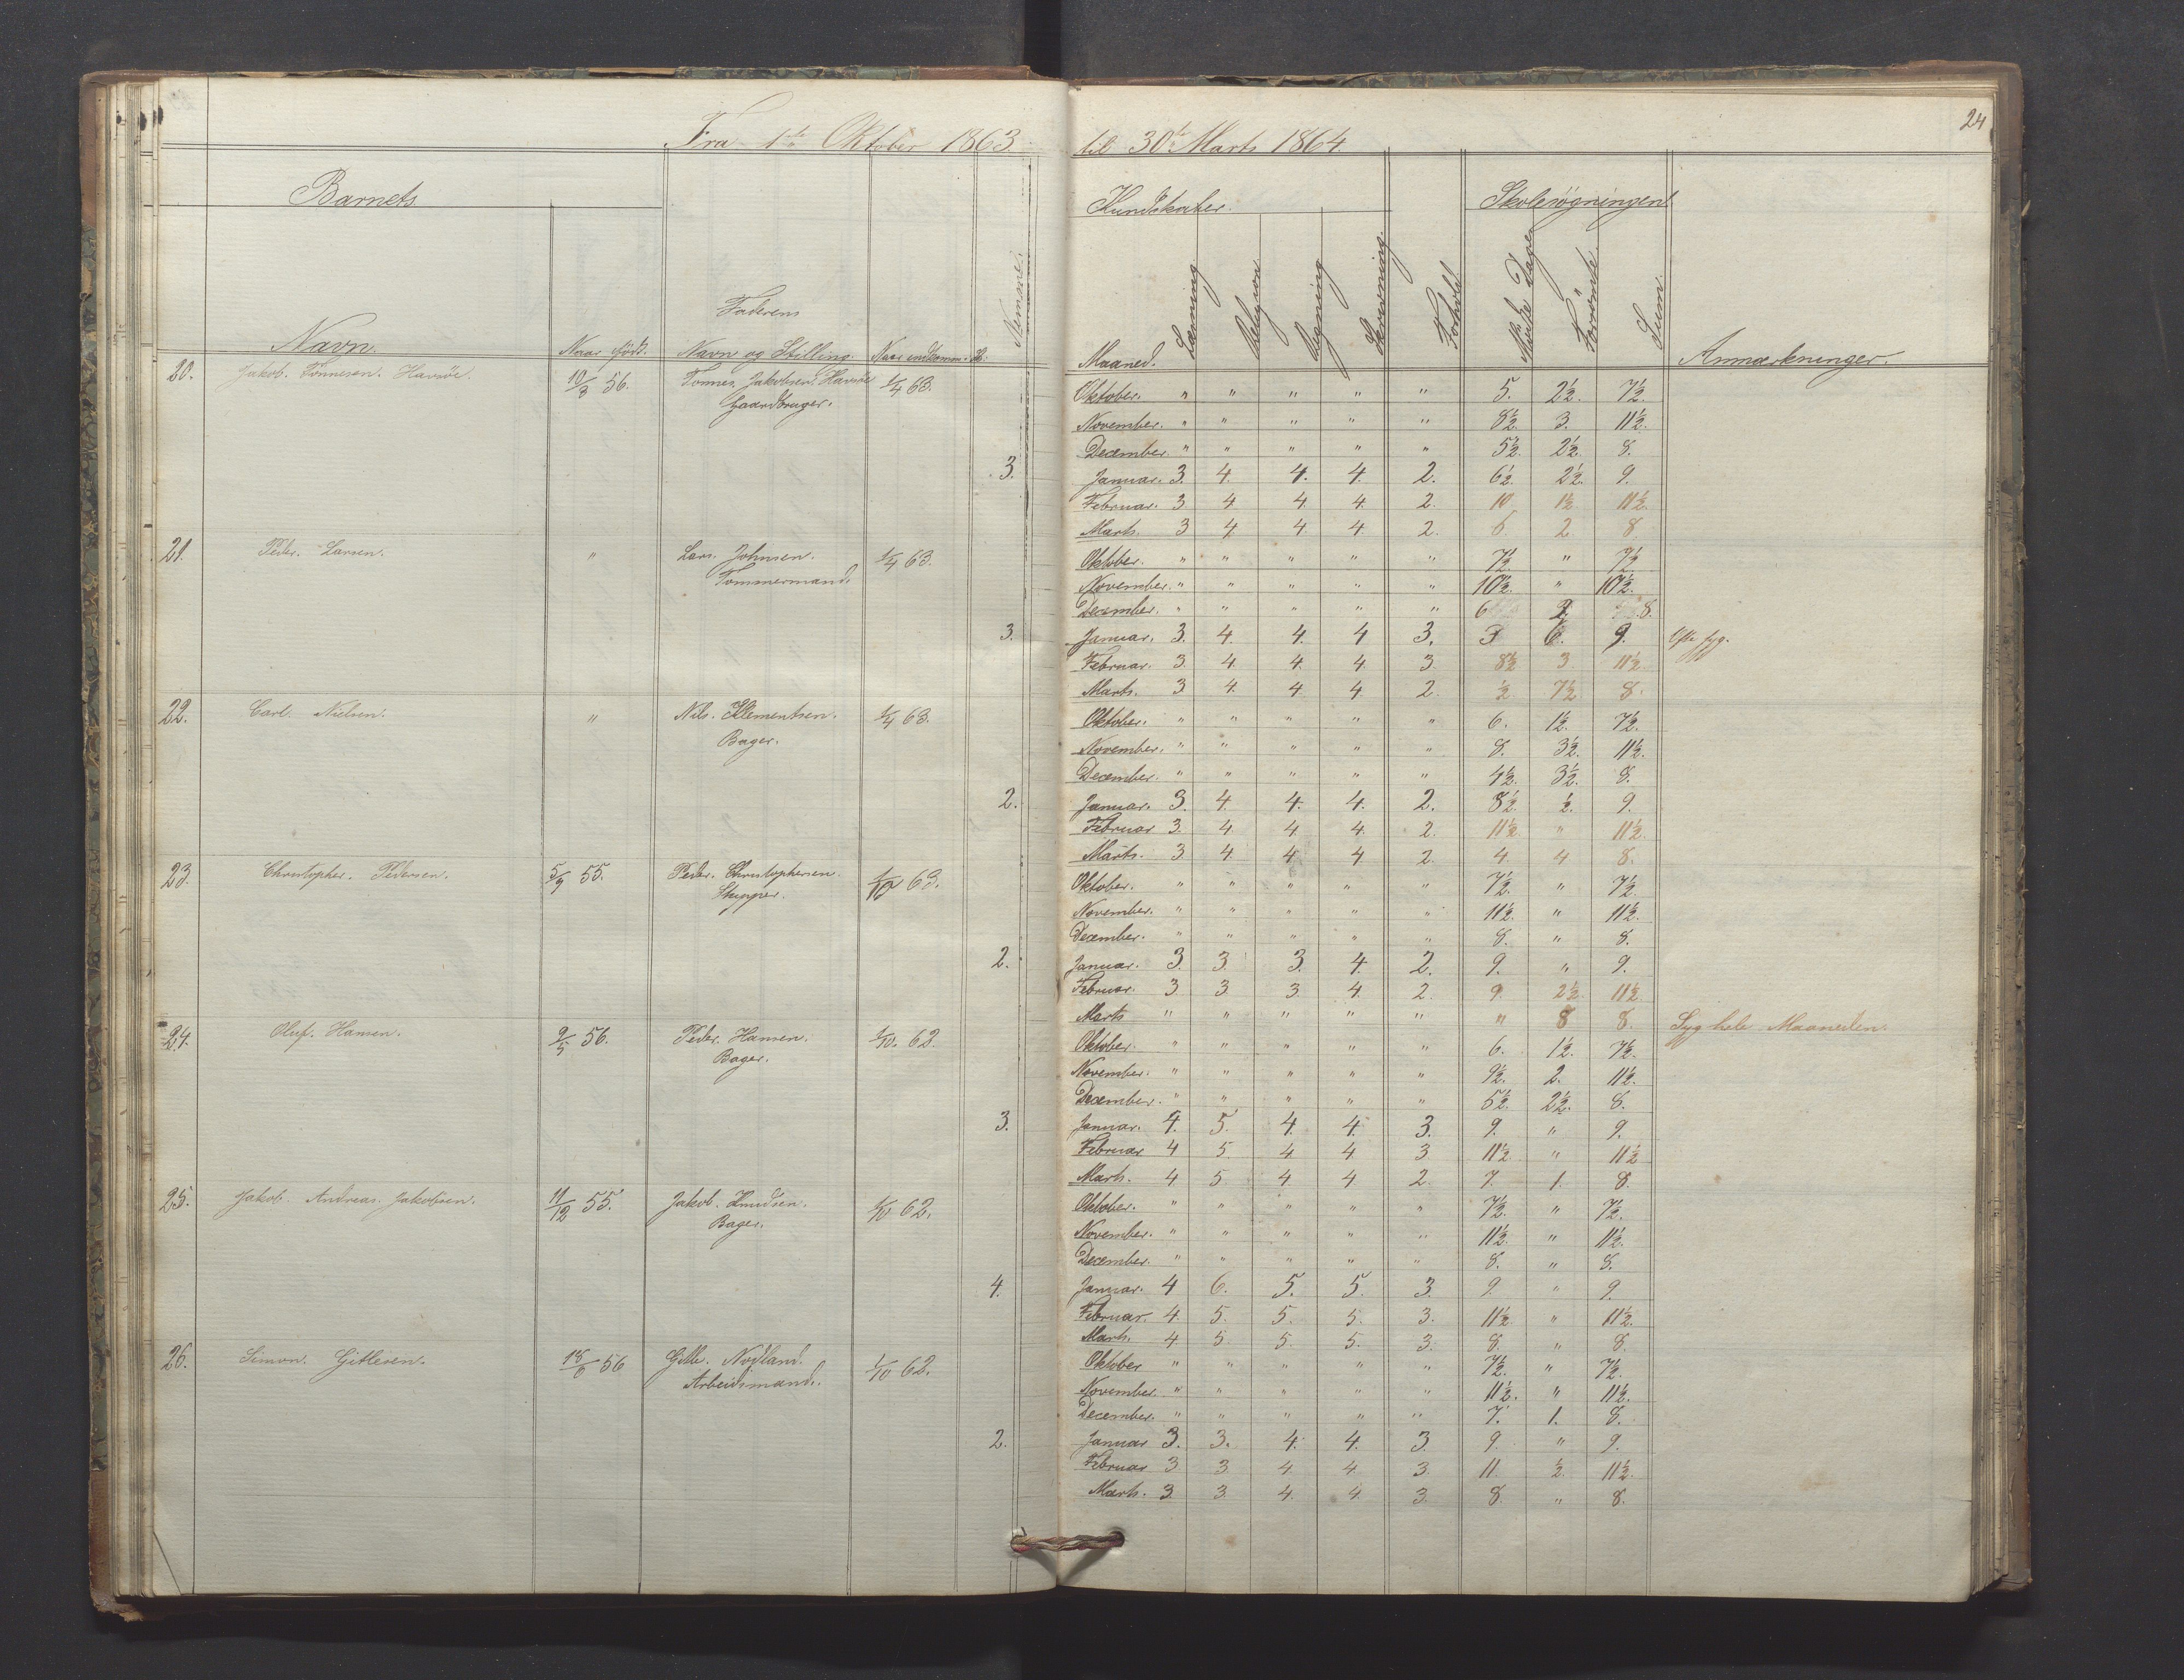 24
Fra 1ste Oktober 1863. til 30te Marts 1864.
Barnets Kundskaber. Skolesøgningen
Navn. Naar født. Faderens Navn og Stilling. Naar indkommen. Nemme. Maaned. Læsning Religion Regning Skrivning. Forhold Mødte Dage Forsømte. Sum. Anmærkninger.
20. Jakob. Tönnesen. Havsöe. 10/3 56. Tönnes. Jakobsen. Havsöe 1/4 63. Oktober. " " " " " 5. 2½. 7½.
Gaardbruger. November. " " " " " 8½. 3. 11½.
December. " " " " " 5½. 2½. 8.
3. Januar. 3. 4. 4. 4. 2. 6½. 2½. 9.
Februar. 3 4 4 4. 2. 10. 1½ 11½.
Marts. 3 4 4. 4. 2. 6 2 8
21. Peder. Larsen. " Lars. Johnsen. 1/4 63. Oktober. " " " " " 7½. " 7½.
Tömmermand. November. " " " " " 10½. " 10½.
December. " " " " " 6 2. 8.
3. Januar. 3. 4. 4. 4 3. 3 6. 9. Ofte syg.
Februar. 3. 4. 4. 4 3. 8½ 3 11½.
Marts. 3 4. 4 4 2. ½. 7½. 8.
22. Carl. Nielsen. " Nils. Klementsen. 1/4 63. Oktober. " " " " " 6. 1½. 7½.
Bager. November. " " " " " 8. 3½. 11½.
December. " " " " " 4½. 3½. 8.
2. Januar. 3. 4. 4. 4. 2. 8½. ½. 9.
Februar 3. 4. 4. 4. 2. 11½. " 11½.
Marts. 3. 4. 4. 4 2. 4. 4 8.
23. Christopher. Pedersen. 5/9 55. Peder. Christophersen. 1/10 63. Oktober. " " " " " 7½. " 7½.
Skipper. November. " " " " " 11½. " 11½.
December. " " " " " 8. " 8.
2. Januar. 3. 3. 3. 4. 2. 9. " 9.
Februar. 3. 3. 3. 4. 2. 9. 2½ 11½
Marts " " " " " " 8 8. Syg hele Maaneden.
24. Oluf. Hansen. 2/5 56. Peder. Hansen. 1/10. 62. Oktober. " " " " " 6. 1½. 7½.
Bager. November. " " " " " 9½. 2. 11½.
December. " " " " " 5½. 2½. 8.
3. Januar. 4. 5. 4. 4. 3. 9. " 9.
Februar 4 5. 4 4 3 11½ " 11½
Marts. 4 5. 4 4 2. 7. 1. 8.
25. Jakob. Andreas. Jakobsen. 11/12 55. Jakob. Knudsen. 1/10 62. Oktober. " " " " " 7½. " 7½.
Bager. November. " " " " " 11½. " 11½.
December. " " " " " 8. " 8.
4. Januar. 4 6. 5. 5. 3. 9. " 9.
Februar. 4. 5. 5. 5. 3. 11½. " 11½.
Marts. 4. 5. 5. 5. 3. 8. " 8.
26. Simon. Gitlesen. 18/6 56 Gitle. Nodland. 1/10 62. Oktober " " " " " 7½. " 7½.
Arbeidsmand. November " " " " " 11½. " 11½.
December. " " " " " 7. 1. 8.
2. Januar 3. 3. 4. 4. 3. 9. " 9.
Februar 3 3. 4. 4. 3. 11. ½. 11½.
Marts. 3. 3. 4. 4. 3. 8. " 8.